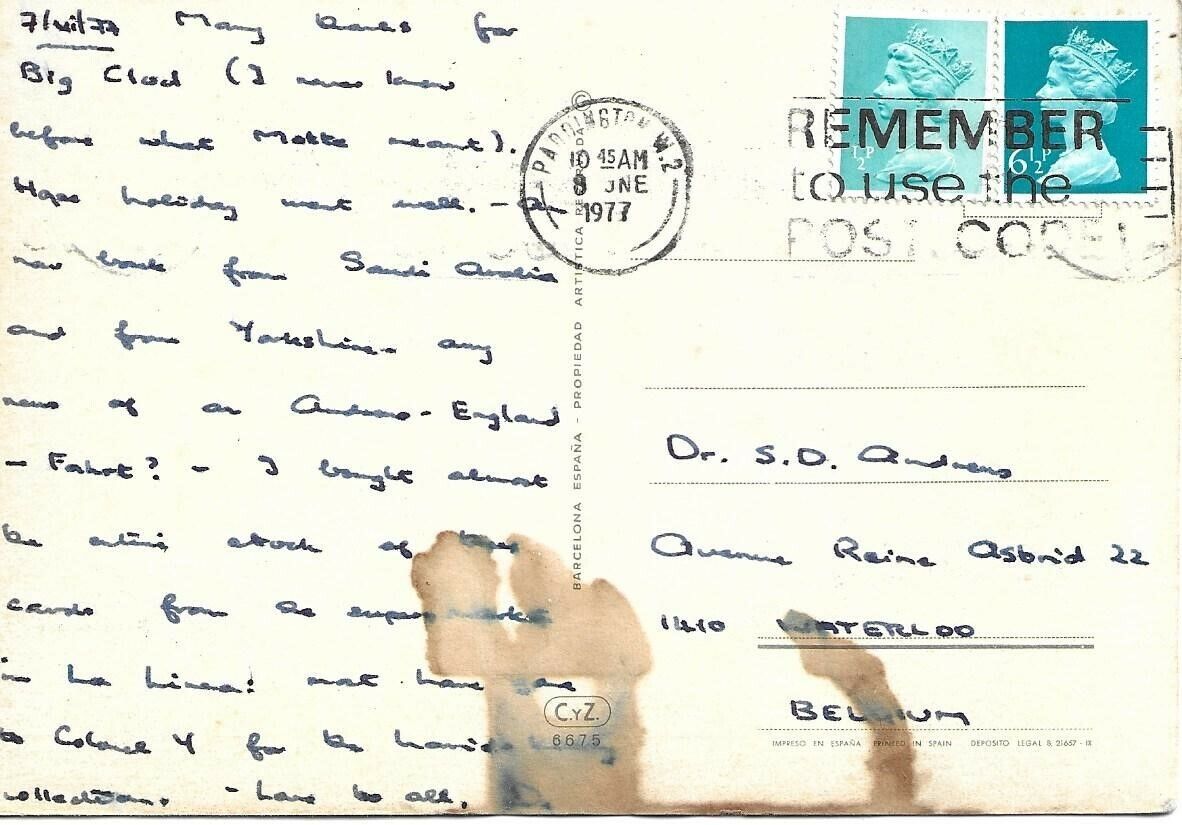 Many thanks for
Big Clod (I never knew
before what Motte meant).
Hope holiday went well. - I'm
now back from Saudi Arabia
and from Yorkshire - any
news of an Andrews - England
- Fahrt? - I bought almost
the entire stock of these
cards from the supermarket
in La Linea: most have gone
to Colonel Y for the
collection. - Love to all,
© BARCELONA ESPAÑA - PROPIEDAD ARTISTICA
C.YZ.
6675
PADDINGTON W.2
10 45 AM
1977
REMEMBER
to use the
POST CODE!
½P
6½P
Dr. S.D. Andrews
Avenue Reine Astrid 22
1410 WATERLOO
BELGIUM
IMPRESO EN ESPAÑA PRINTED IN SPAIN DEPOSITO LEGAL B, 21657 - IX